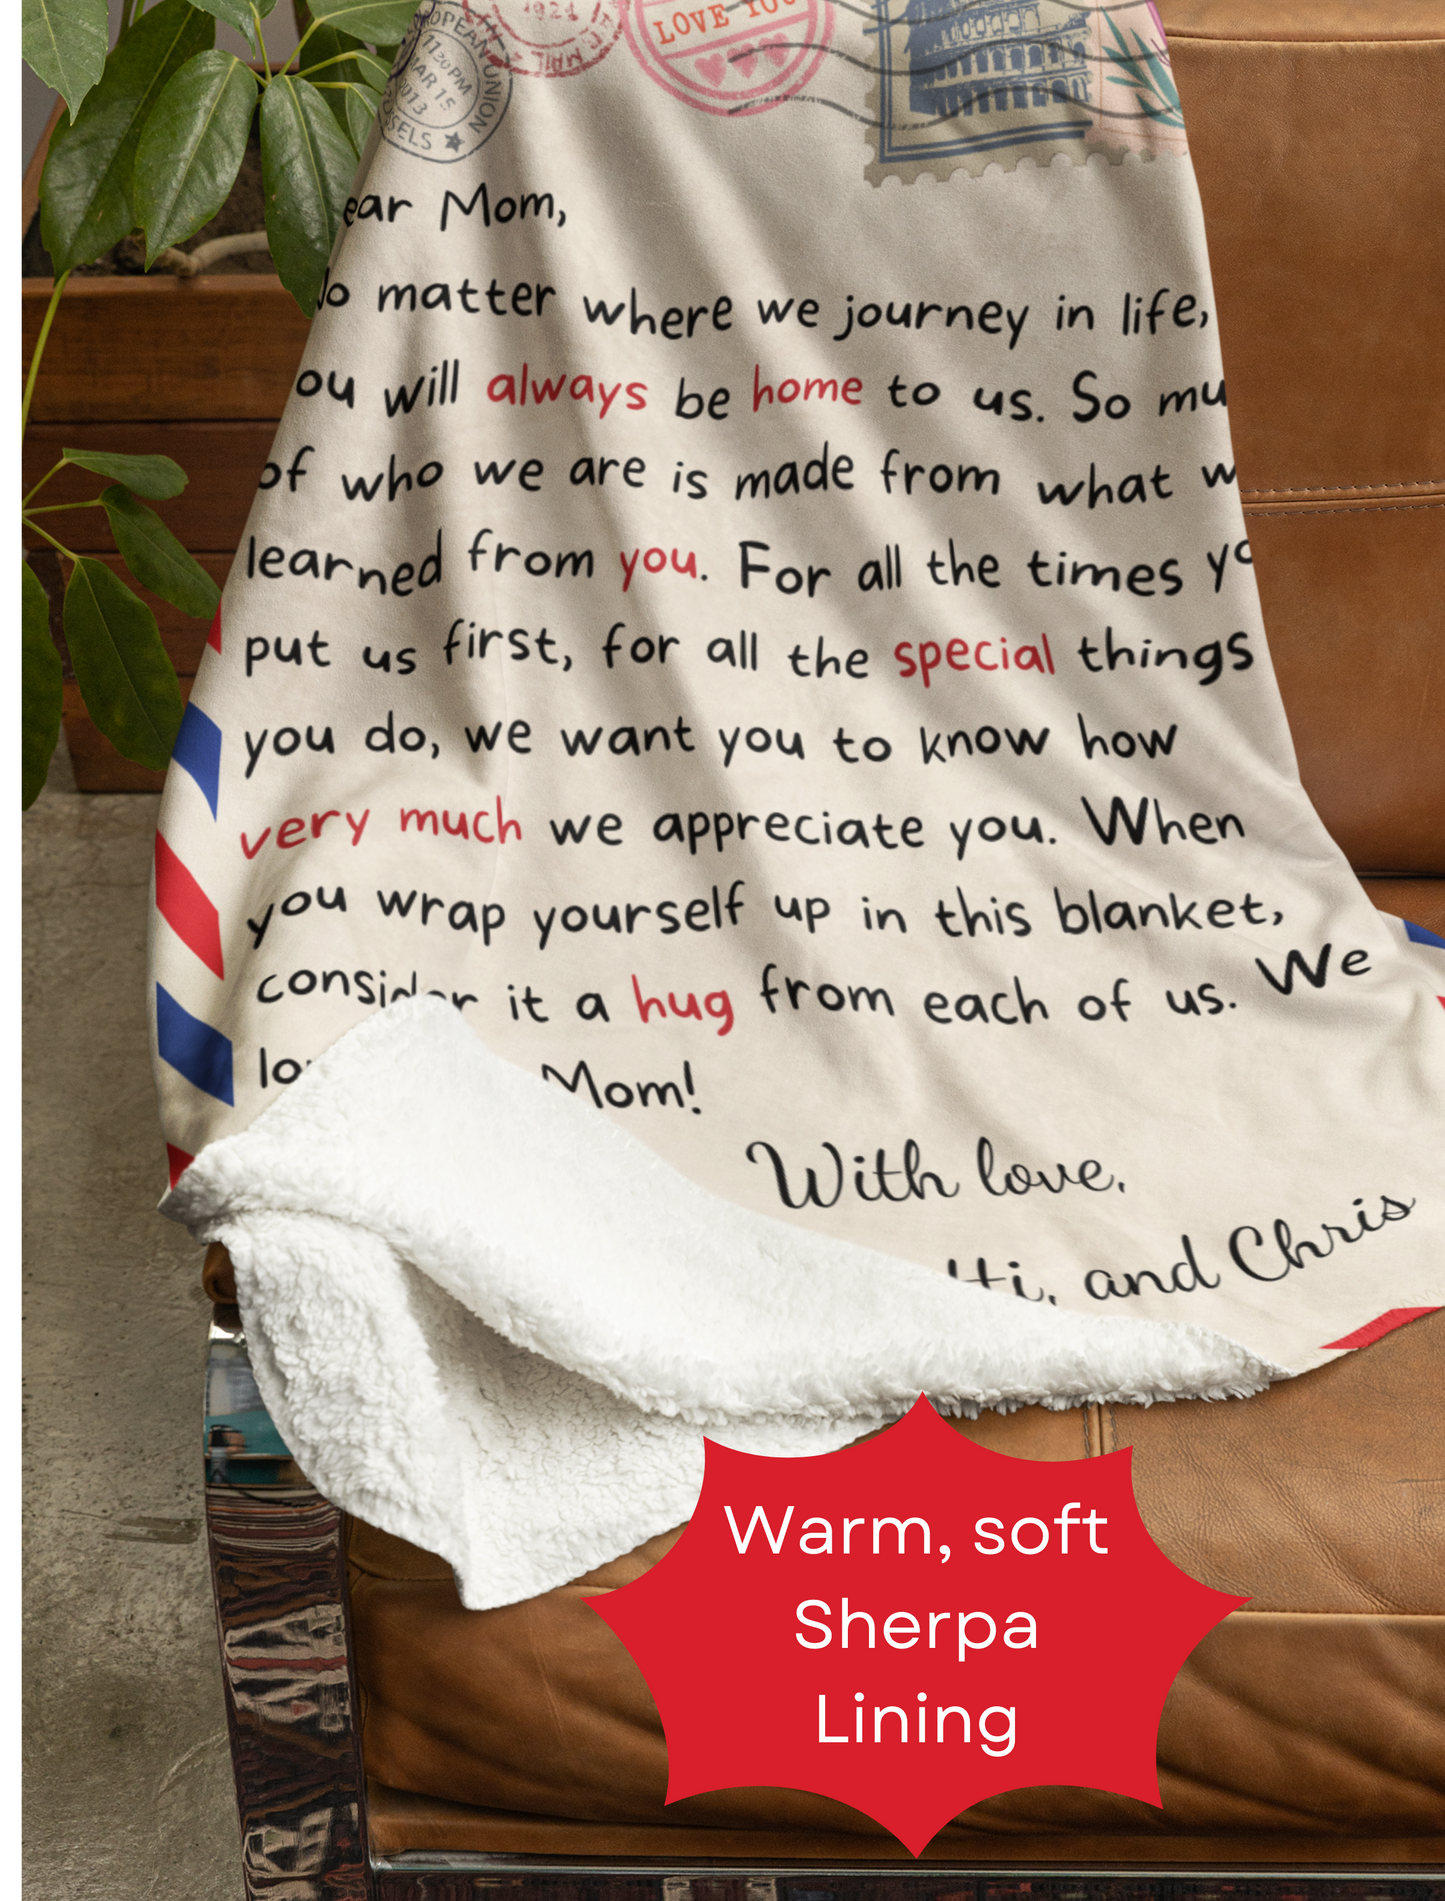 EUROPEAN UNION
11:30PM
MAR 15
2013
1924
LOVE YOU
ear Mom,
No matter where we journey in life,
ou will always be home to us. So mu
of who we are is made from what w
learned from you. For all the times yo
put us first, for all the special things
you do, we want you to know how
very much we appreciate you. When
you wrap yourself up in this blanket,
consider it a hug from each of us. We
lo Mom!
With love,
tti, and Chris
Warm, soft
Sherpa
Lining